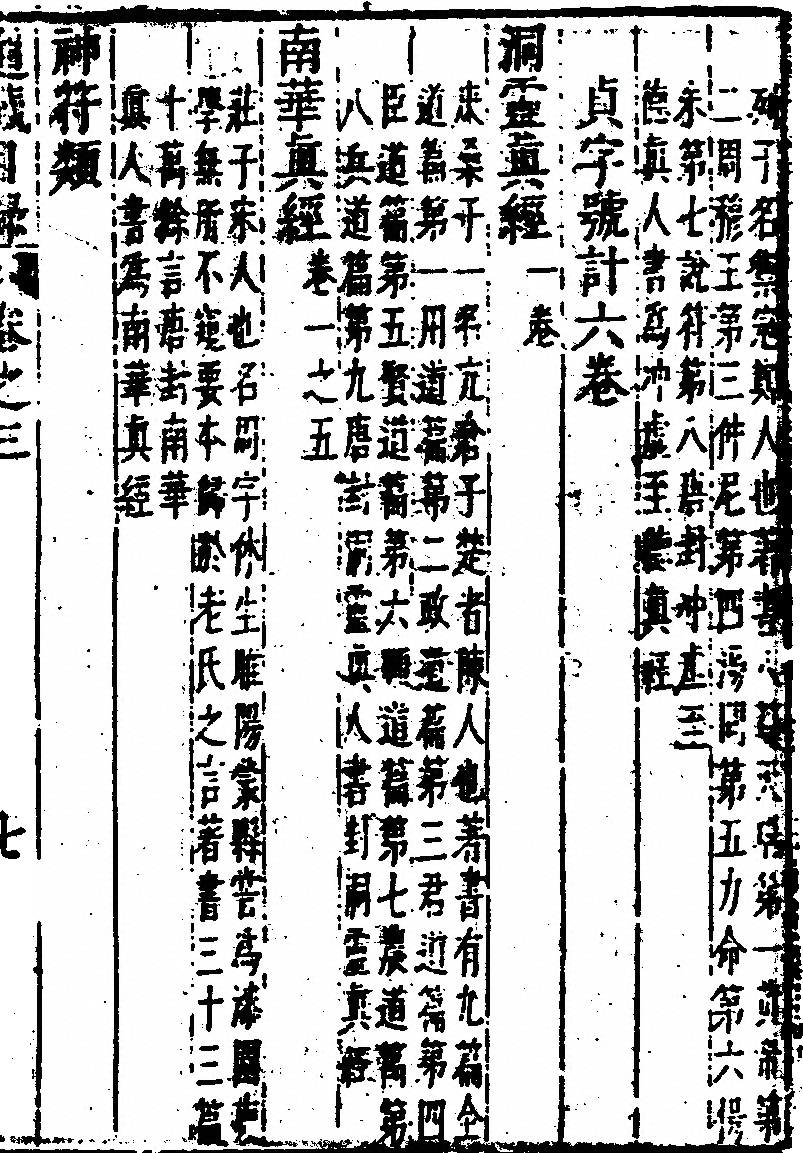 列子名禦寇鄭人也著書八篇天瑞第一黃帝第
二周穆王第三仲尼第四湯問第五力命第六楊
朱第七說符第八唐封冲虛至
德真人書為冲虛至德真經
貞字號計六卷
洞靈真經一卷
庚桑子一名亢倉子楚者陳人也著書有九篇全
道篇第一用道篇第二政道篇第三君道篇第四
臣道篇第五賢道篇第六順道篇第七農道篇第
八兵道篇第九唐封洞靈真人書封洞靈真經
南華真經卷一之五
莊子宋人也名周字休生睢陽蒙縣嘗為漆園吏
學無所不窺要本歸於老氏之言著書三十三篇
十萬餘言唐封南華
真人書為南華真經
神符類
道藏目錄 卷之三 七